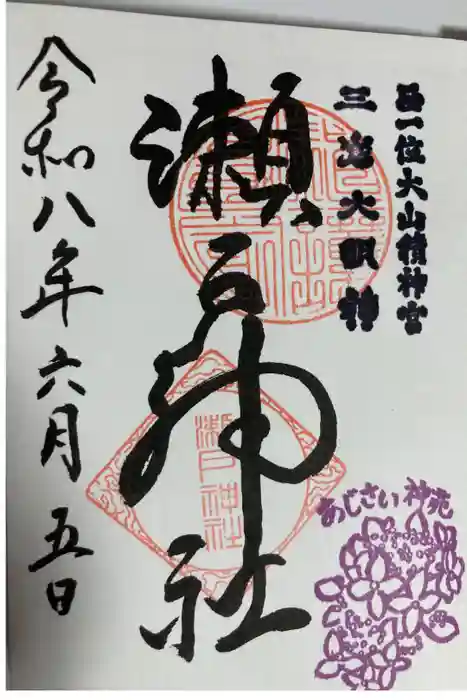 正一位大山積神宮
三嶌大明神
瀬戸神社
瀬戸神社
令和八年六月五日
あじさい神苑